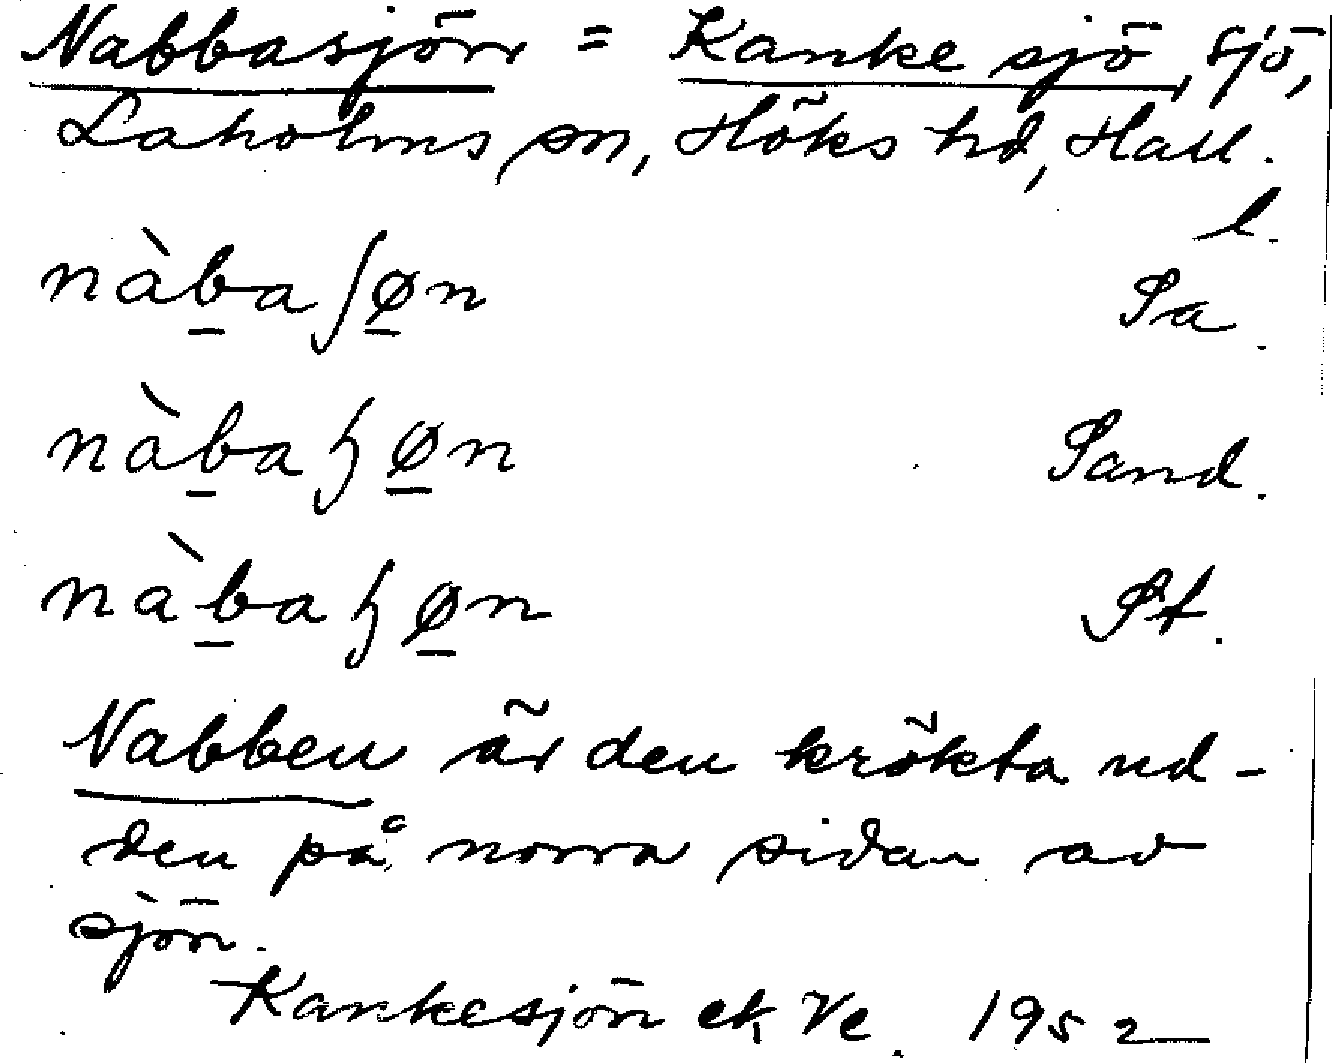 Nabbasjön = Kanke sjö, sjö,
Laholms sn, Höks hd, Hall.
l.
nàbaʃøn Sa.
nàbaɧøn Sand.
nàbaɧøn St.
Nabben är den krökta ud-
den på norra sidan av
sjön.
Kankesjön ek Ve. 1952